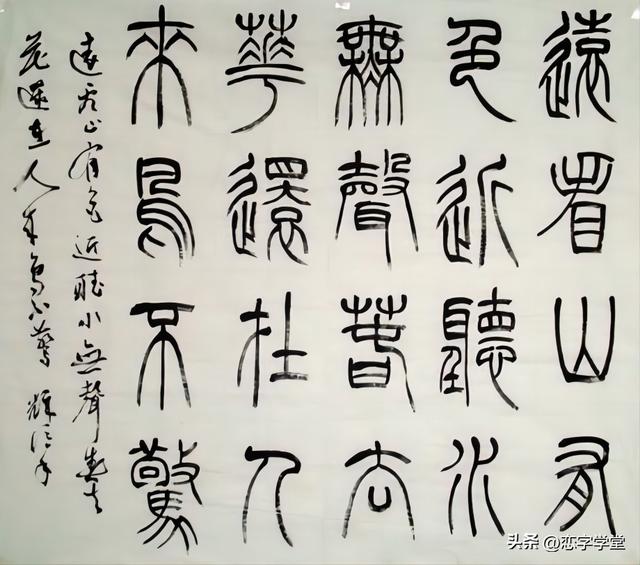 遠看山有
色近聽水
無聲春去
華還在人
來鳥不驚
遠看山有色近聽水無聲春去
花還在人來鳥不驚
头条 @恋字学堂